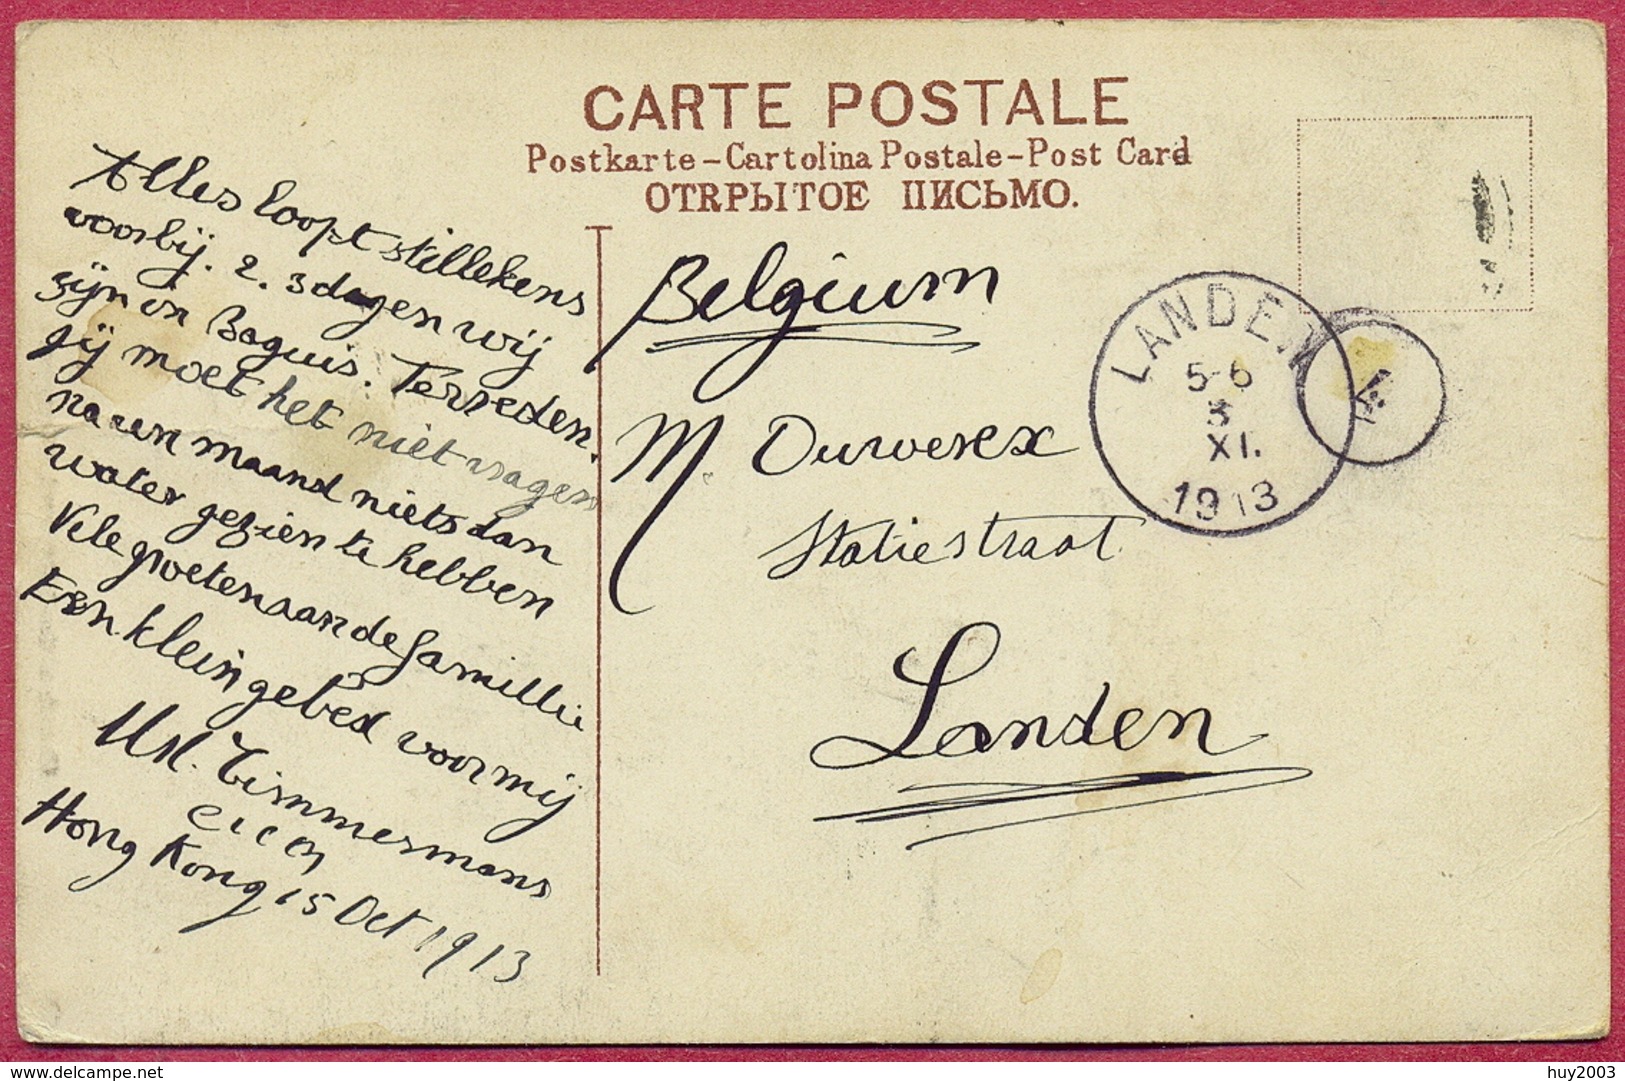 CARTE POSTALE
Postkarte-Cartolina Postale-Post Card
ОТRРЫТОЕ ПИСЬМО.
Alles loopt stillekens
voorbij. 2. 3 dagen wij
zijn in Baguis. Terreden.
gij moet het niet vragen
na een maand niets dan
water gezien te hebben
Vele groeten aan de famillie
Een klein gebed voor mij
Timmermans
cicm
Hong Kong 15 Oct 1913
Belgium
M. Ouwerex
Statiestraat
Landen
LANDEN
5-6
3
XI.
1913
www.delcampe.net
huy2003